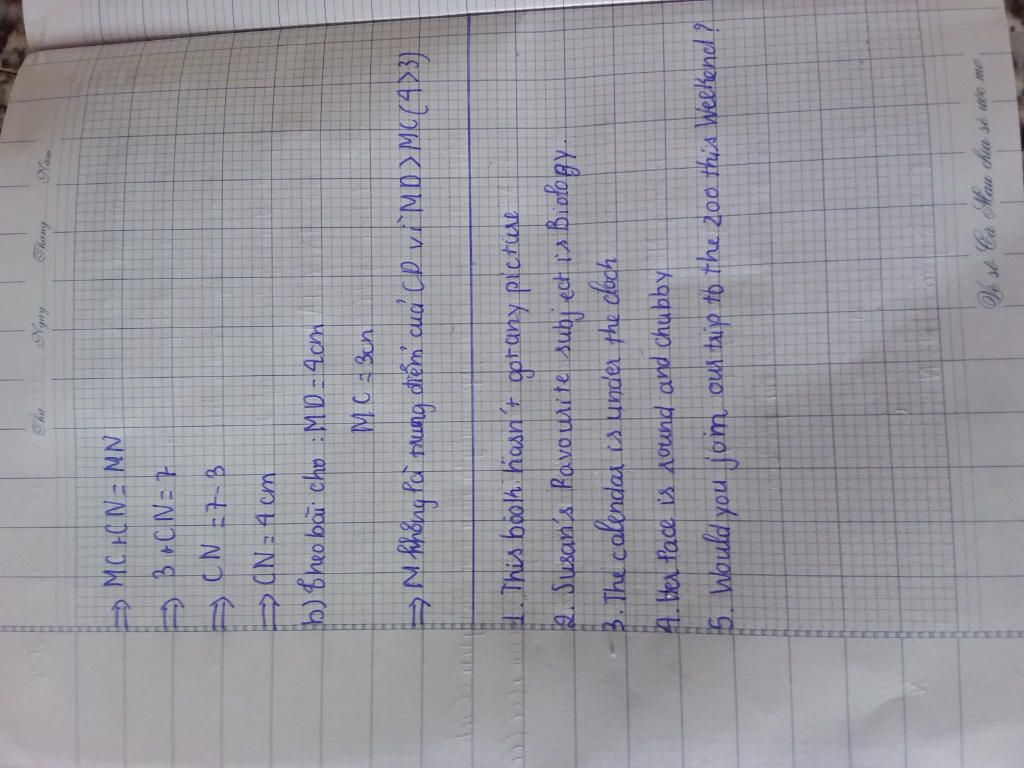 Thứ Ngày Tháng Năm
=> MC + CN = MN
=> 3 + CN = 7
=> CN = 7 - 3
=> CN = 4cm
b) Theo bài cho : MD = 4cm
MC = 3cm
=> M không là trung điểm của CD vì MD > MC (4>3)
1. This book hasn't got any picture
2. Susan's Favourite subject is Biology.
3. The calendar is under the clock
4. Her Face is round and chubby
5. Would you join our trip to the zoo this Weekend?
Vở sê Cà Mau chia sẻ ước mơ